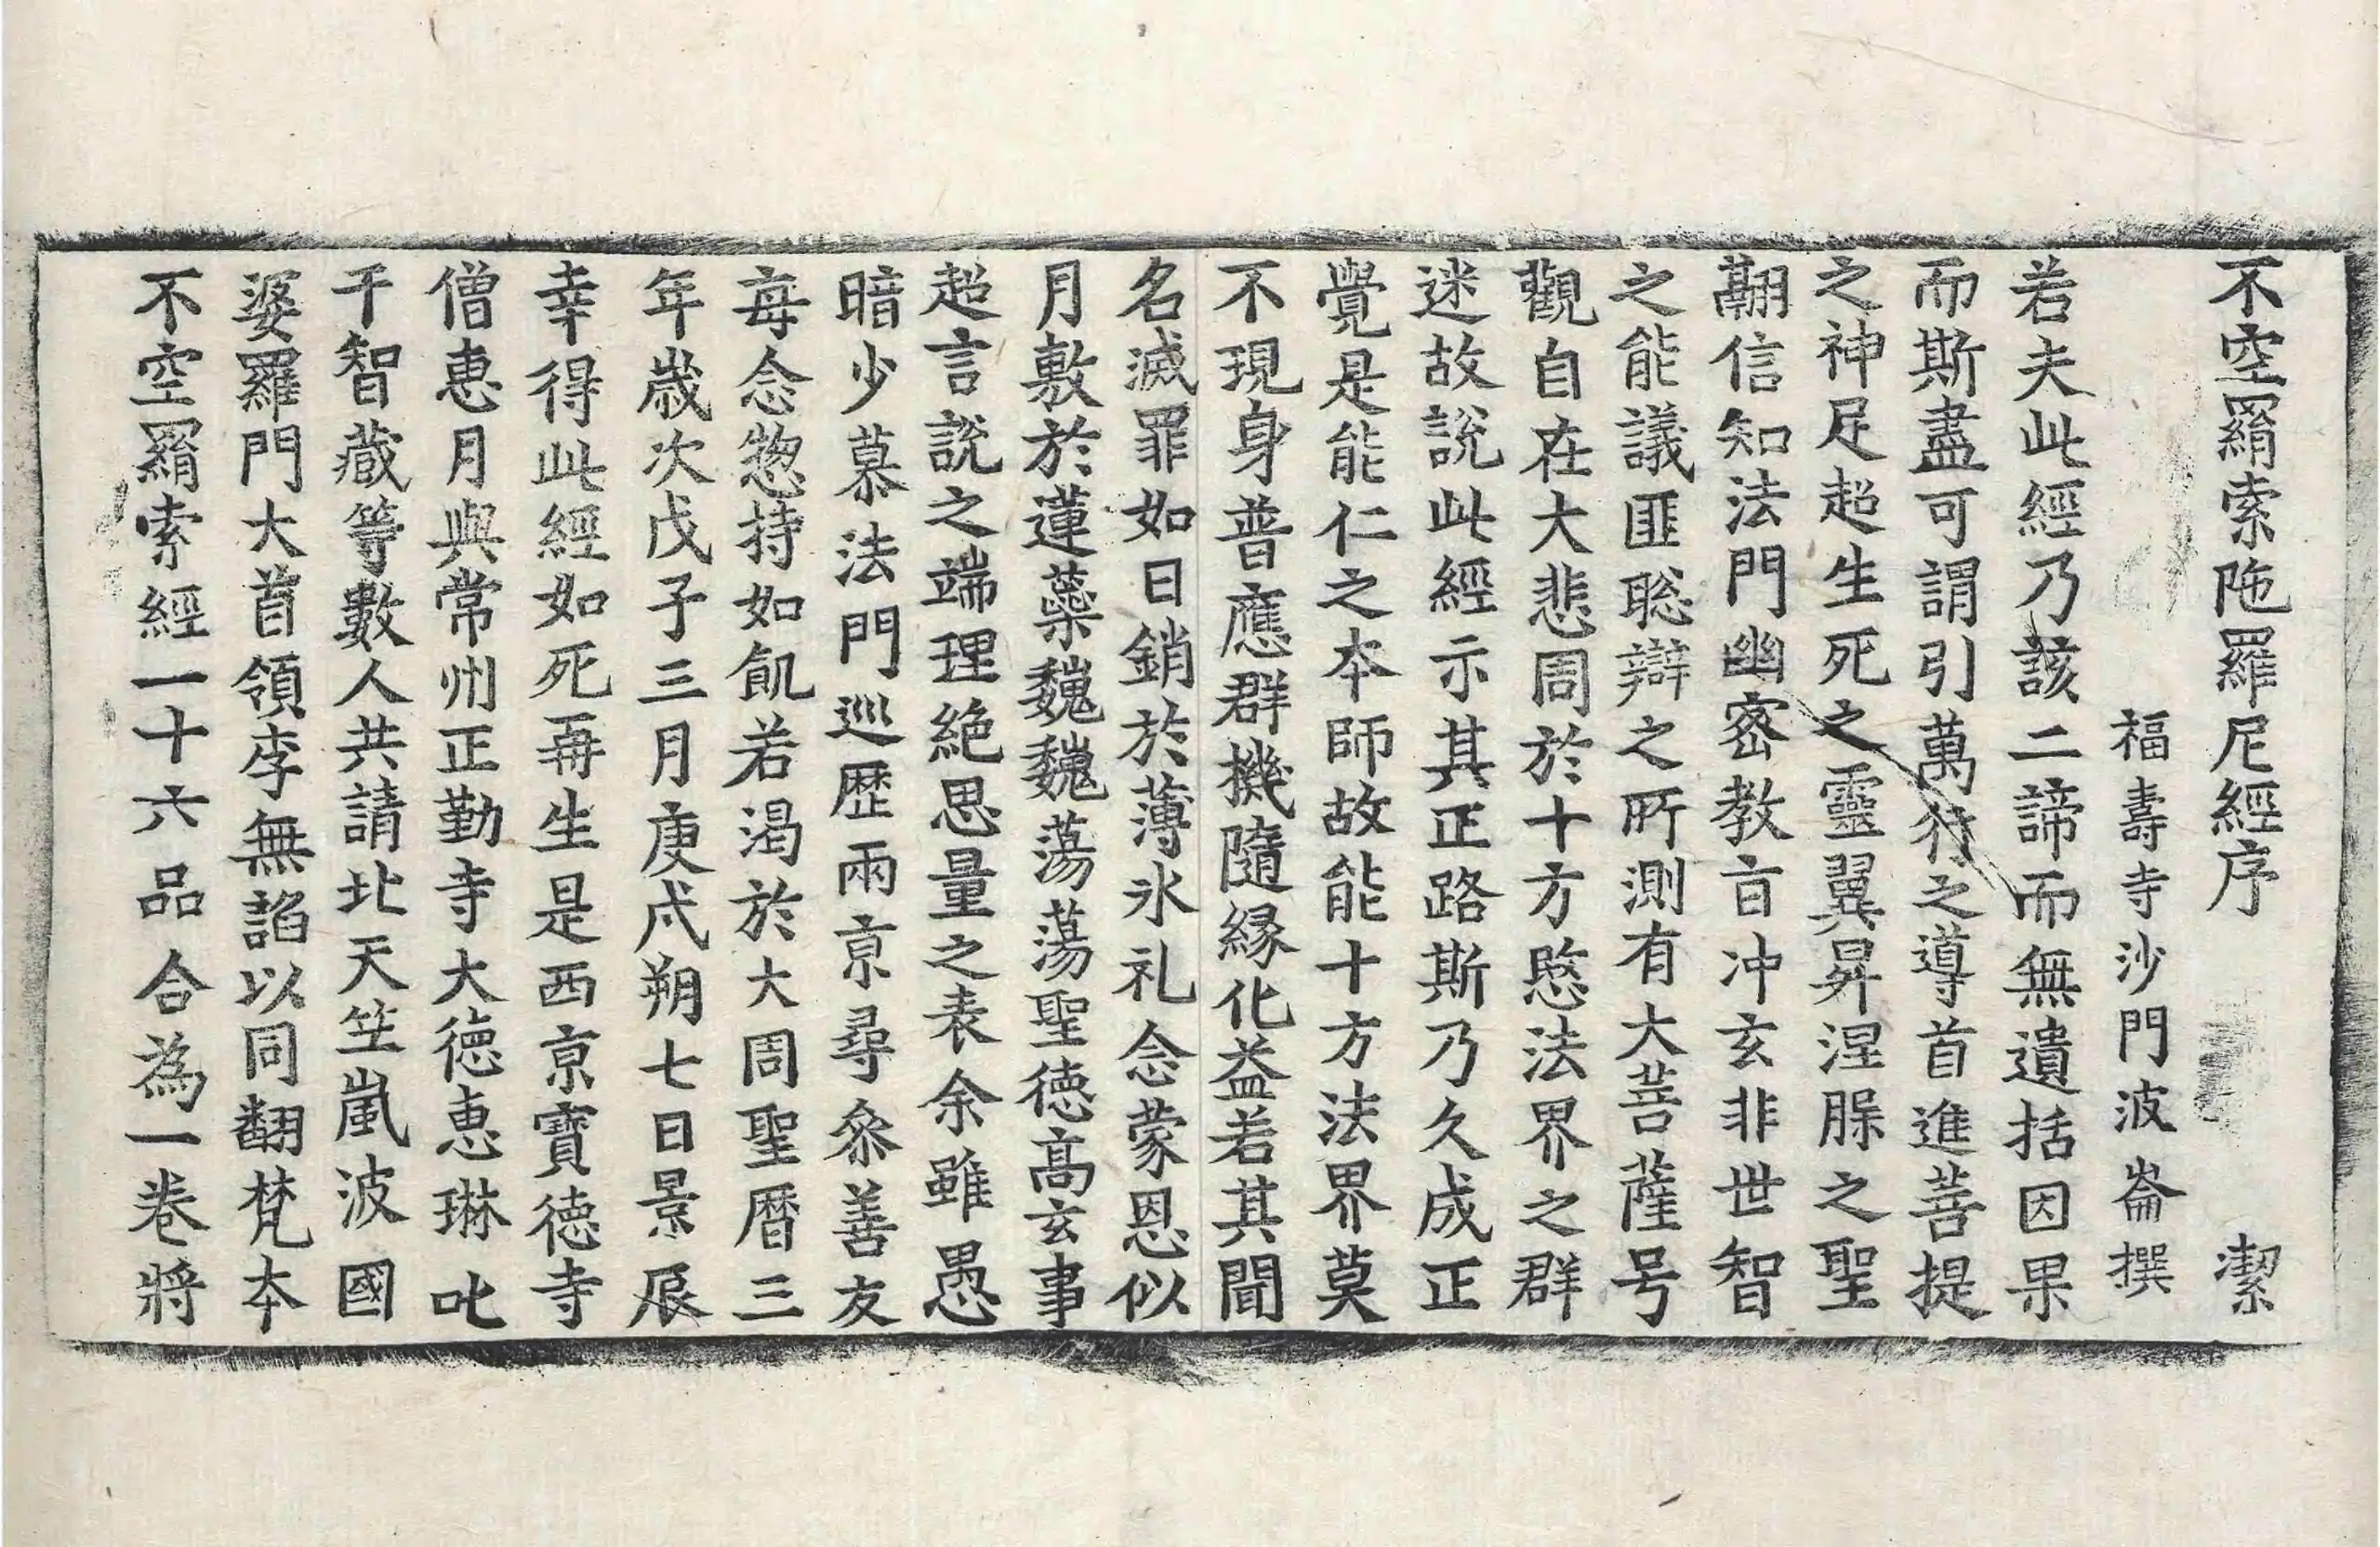 不空羂索陁羅尼經序　潔
福壽寺沙門波崙撰
若夫此經乃該二諦而無遺括因果
而斯盡可謂引萬行之導首進菩提
之神足超生死之靈翼昇涅槃之聖
翻信知法門幽密教旨沖玄非世智
之能議匪聡辯之所測有大菩薩号
觀自在大悲周於十方愍法界之群
迷故說此經示其正路斯乃久成正
覺是能仁之本師故能十方法界莫
不現身普應群機隨緣化益若其聞
名滅罪如日銷於薄氷礼念蒙恩似
月敷於蓮蘂巍巍蕩蕩聖德髙玄事
超言說之端理絶思量之表余雖愚
暗少慕法門巡歷兩京尋叅善友
每念惣持如飢若渴於大周聖曆三
年歲次戊子三月庚戌朔七日景辰
幸得此經如死再生是西京寶德寺
僧惠月與常州正勤寺大德惠琳叱
干智藏等數人共請北天竺嵐波國
婆羅門大首領李無諂以同翻梵本
不空羂索經一十六品合為一卷將